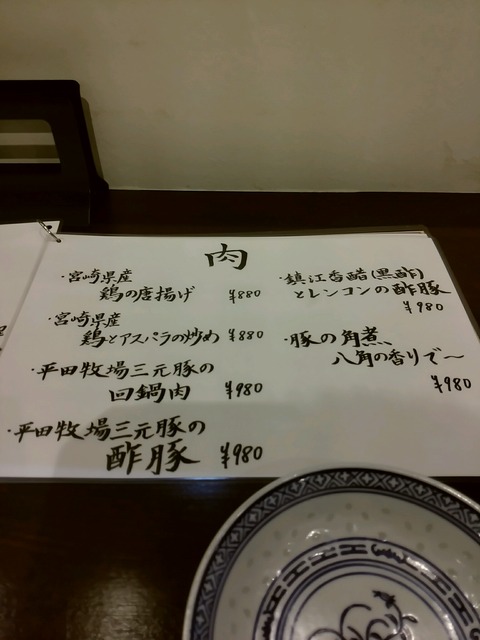 肉
・宮崎県産
鶏の唐揚げ ¥880
・宮崎県産
鶏とアスパラの炒め ¥880
・平田牧場三元豚の
回鍋肉 ¥980
・平田牧場三元豚の
酢豚 ¥980
・鎮江香醋(黒酢)
とレンコンの酢豚
¥980
・豚の角煮、
八角の香りで〜
¥980